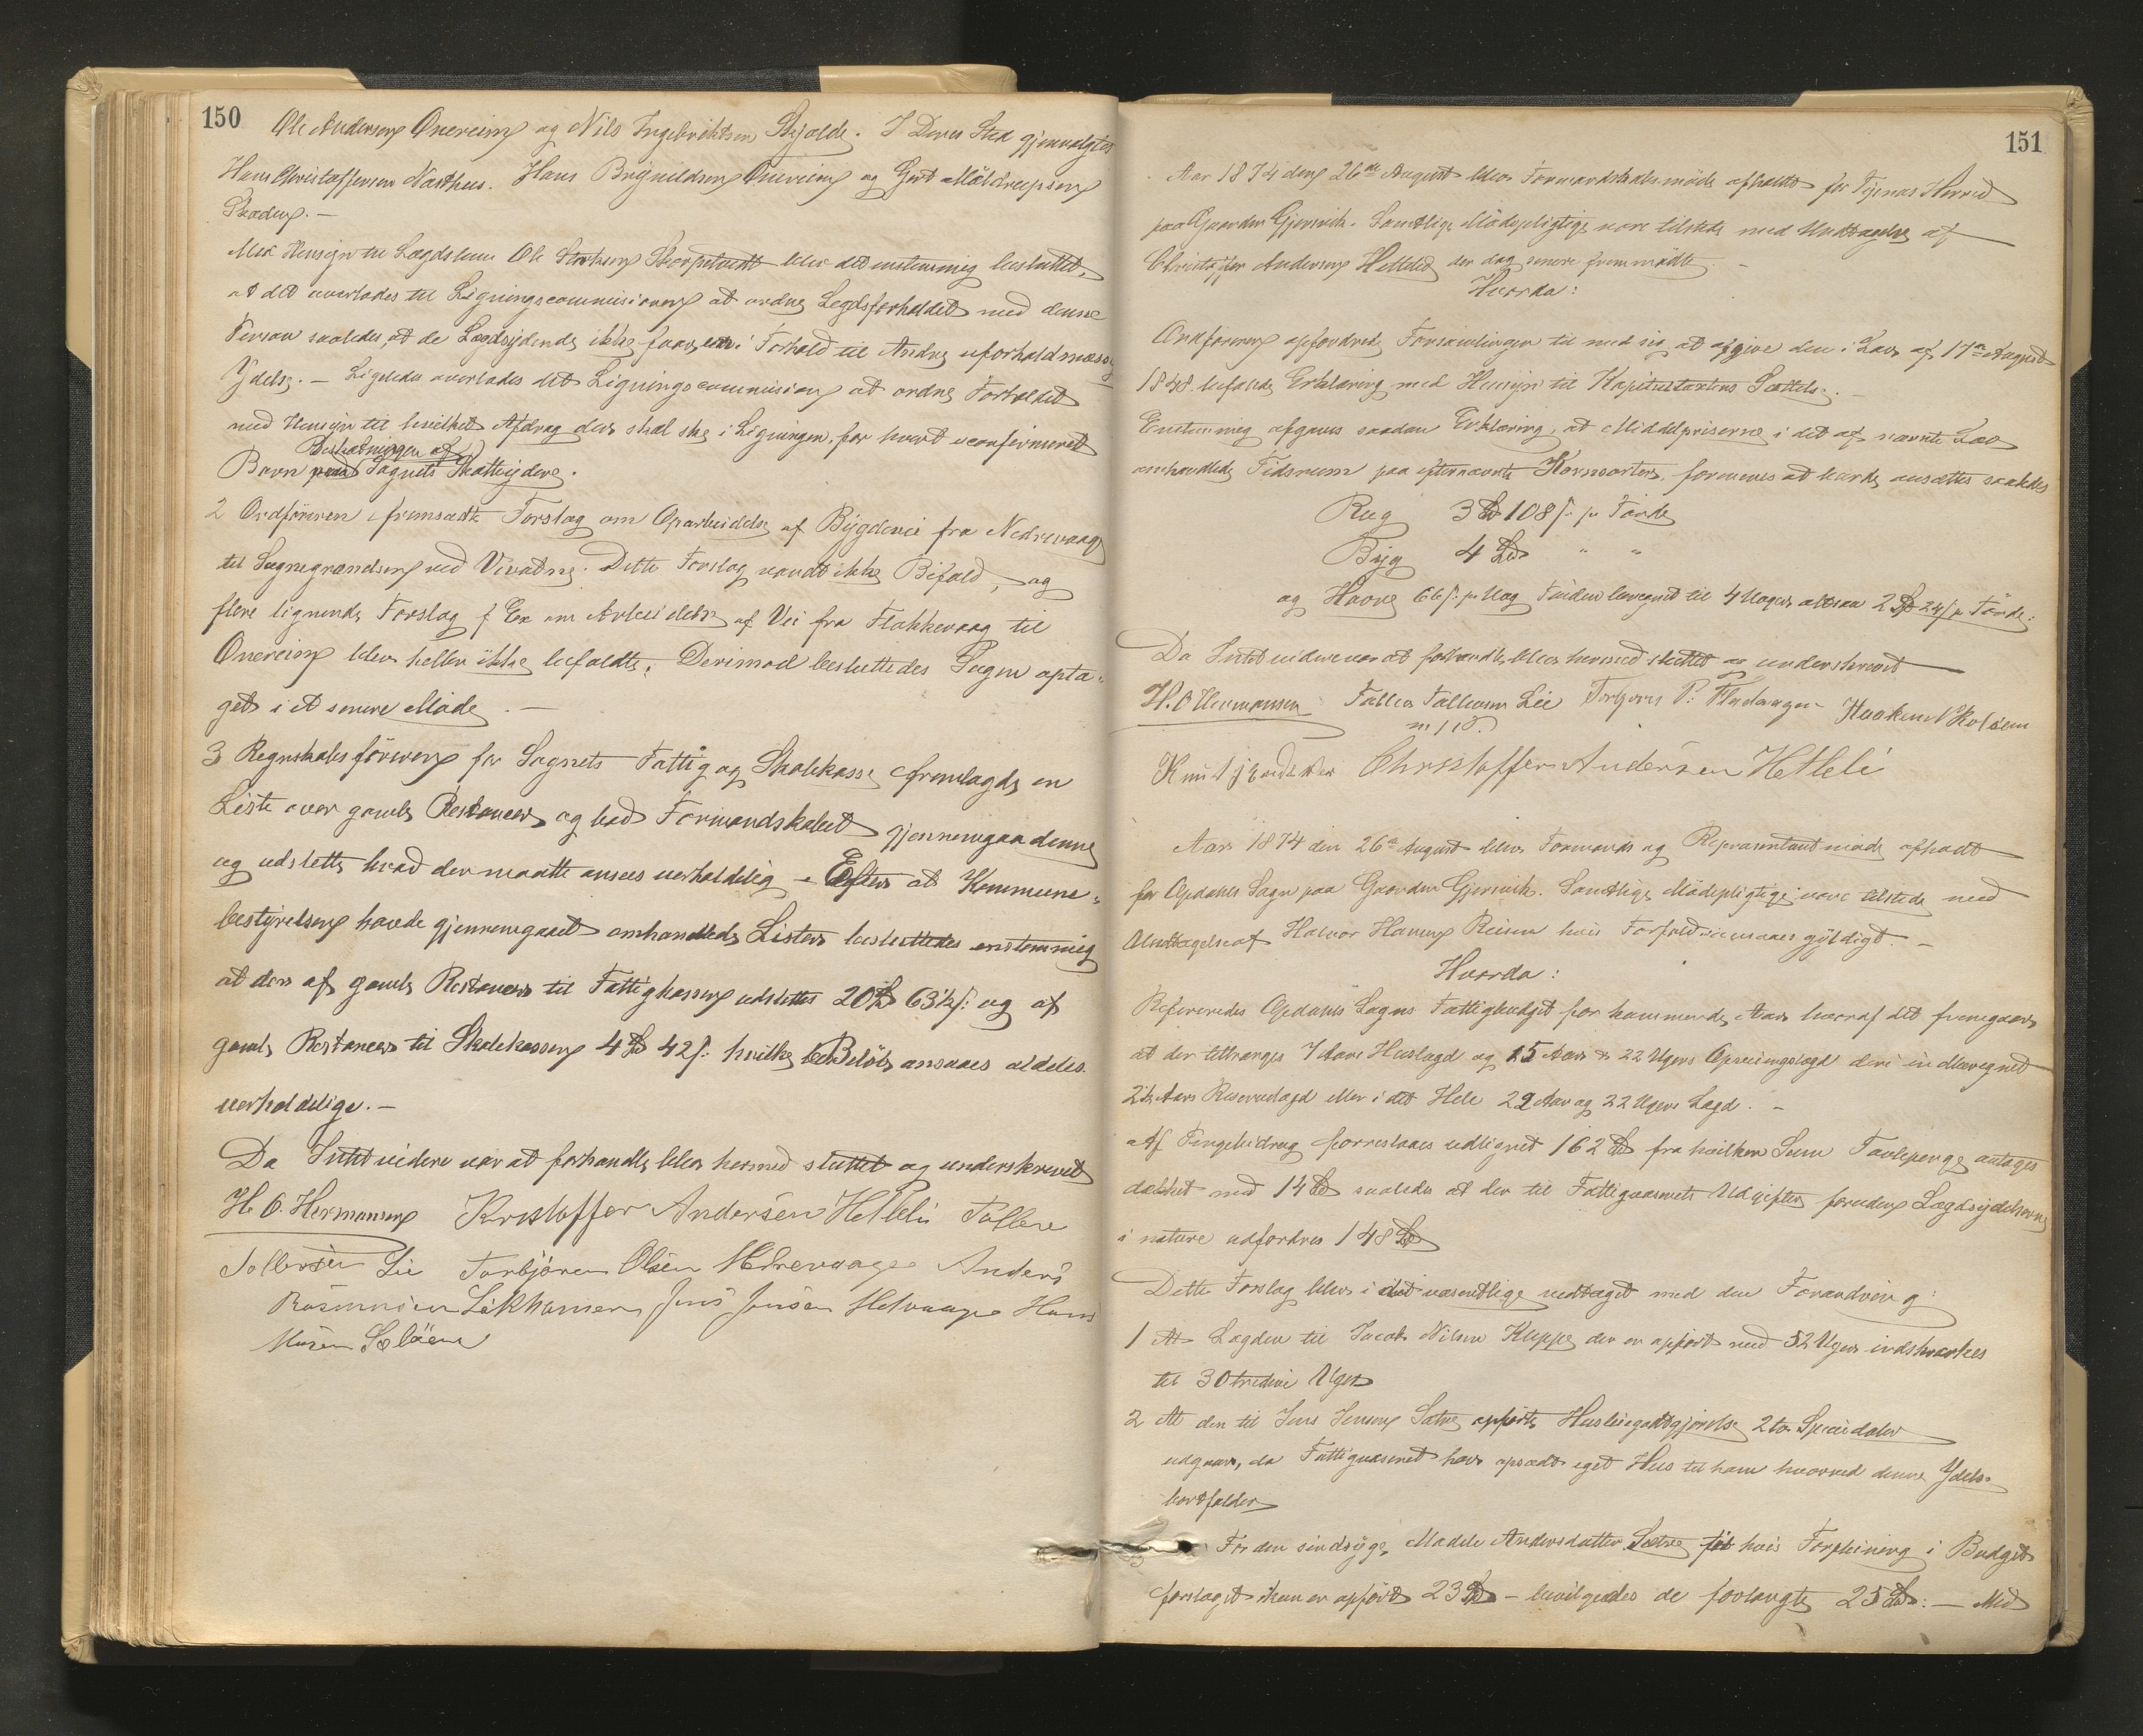 150
Ole Andersen Onereim og Nils Ingebriktsen Skjolde. I Deres Sted gjenvalgtes
Hans Christoffersen Narthus. Hans Brynildsen Onereim og Gert
Med Hensyn til Lægdslem Ole blev det enstemmig besluttet,
at det overlades til Ligningscommisionen at ordne Legdsforholdet med denne
Person saaledes, at de Lægdsydende ikke faar, en i Forhold til Andre uforholdmæssig
Ydelse. — Ligeledes overlades det Ligningscommisionen at ordne Forholdet
med Hensyn til hvilket Afdrag der skal ske i Ligningen, for hvert uconfirmeret
Beskatningen af
Barn ved Sognets Skatteydere.
2 Ordføreren fremsatte Forslag om Oparbeidelse af Bygdevei fra Nedrevaage
til Sognegrændsen ved Vivatne. Dette Forslag vandt ikke Bifald, og
flere lignende Forslag f Ex om Arbeidelse af Vei fra Flakkevaag til
Onereim blev heller ikke bifaldte; Derimod besluttedes Sagen opta-
get i et senere Møde. —
3 Regnskabsføreren for Sognets Fattig og Skolekasse fremlagde en
Liste over gamle Restancer og bad Formandskabet gjennemgaa denne
og udslette hvad der maatte ansees uerholdelig — Efter at Kommune-
bestyrelsen havde gjennemgaaet omhandlede Lister besluttedes enstemmig
at der af gamle Restancer til Fattigkassen udslettes 20 Spd 63½ s: og af
gamle Restancer til Skolekassen 4 Spd 42 s: hvilke Beløb ansaaes aldeles
uerholdelige. —
Da Intet videre var at forhandle blev hermed sluttet og underskrevet
H. O. Hermansen Kristoffer Andersen Hetleli Tollev
Tollevsen Lie Torbjørn Olsen Nedrevaage Anders
Rasmusen Jens Jensen Helvaage Hans

151
Aar 1874 den 26de August blev Formandskabsmøde afholdt for Tysnæs Herred
paa Gaarden Gjersvik. Samtlige Mødepligtige vare tilstede med Undtagelse af
Christoffer Andersen Hetleli der dog senere fremmødte. —
Hvorda:
Ordføreren opfordrede Forsamlingen til med sig at afgive den i Lov af 17de August
1848 befalede Erklæring med Hensyn til Kapitelstaxtens Sættelse. —
Enstemmig afgaves saadan Erklæring, at Middelpriserne i det af nævnte Lov
omhandlede Tidsrum paa efternævnte Kornsorter, formenes at burde ansættes saaledes
Rug 3 Spd 108 s: pr Tønde
Byg 4 Spd " "
og Havre 66 s: pr Vog Tønden beregnet til 4 Voger altsaa 2 Spd 24 s pr Tønde.
Da Intet videre var at forhandle, blev hermed sluttet og underskrevet
H. O Hermansen Tollev Tollevsen Lie Torbjørn O. Haakon N Kolseen
m. f. P.
Christoffer Andersen Hetleli
Aar 1874 den 26de August blev Formands og Repræsentantmøde afholdt
for Opdahls Sogn paa Gaarden Gjersvik. Samtlige Mødepligtige vare tilstede med
Undtagelse af Halvor Hansen Reisen hvis Forfald ansaaes gyldigt. —
Hvorda:
Refereredes Opdahls Sogns Fattigbudget for kommende Aar hvoraf det fremgaar
at der tiltrænges 7 Aars Huslægd og 15 Aars & 22 Ugers Opseiingslægd deri indberegnet
2½ Aars Reservelægd eller i det Hele 22 Aar og 22 Ugers Lægd. —
Af Pengebidrag foresloges udlignet 162 Spd fra hvilken Sum Tavlepenge antages
dækket med 14 Spd saaledes at der til Fattigvæsenets Udgifter foruden Lægdsydelserne
i nature udfordres 148 Spd
Dette Forslag blev i det væsentlige vedtaget med den Forandring:
1 At Lægden til Jacob Nilsen Kleppe der er opført med 52 Uger indskrænkes
til 30 tredive Uger
2 At den til Jens Jensen Sætre opførte Husleiegodtgjørelse 2to Speciedaler
udgaar, da Fattigvæsenet har opsadt eget Hus til ham hvorved denne Ydelse
bortfalder
For den sindsyge, Madele Andersdatter Sætre til hvis Forpleining i Budget
forslaget kun er opført 23 Spd — bevilgedes de forlangte 25 Spd: — Med